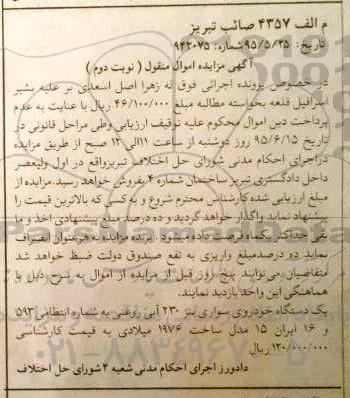 م الف ۴۳۵۷ صائب تبریز
تاریخ: ۹۵/۵/۲۵ شماره: ۹۴۲۰۷۵
آگهی مزایده اموال منقول ( نوبت دوم )
درخصوص پرونده اجرائی فوق له زهرا اصل اسعدی بر علیه بشیر
اسرافیل قلعه بخواسته مطالبه مبلغ ۴۶/۱۰۰/۰۰۰ ریال با عنایت به عدم
پرداخت دین اموال محکوم علیه توقیف ارزیابی وطی مراحل قانونی در
تاریخ ۹۵/۶/۱۵ روز دوشنبه از ساعت ۱۱الی ۱۲ صبح از طریق مزایده
دراجرای احکام مدنی شورای حل اختلاف تبریزواقع در اول ولیعصر
داخل دادگستری تبریز ساختمان شماره ۴ بفروش خواهد رسید.مزایده از
مبلغ ارزیابی شده کارشناس محترم شروع و به کسی که بالاترین قیمت را
پیشنهاد نماید واگذار خواهد گردید و ده درصد مبلغ پیشنهادی اخذ و ما
بقی حداکثر یکماه فرصت داده میشود . برنده مزایده به هرعنوان انصراف
نماید ده درصدمبلغ واریزی به نفع صندوق دولت ضبط خواهد شد
متقاضیان می‌توانند پنج روز قبل از مزایده از اموال به شرح ذیل با
هماهنگی این واحد بازدید نمایند.
یک دستگاه خودروی سواری بنز ۲۳۰ آبی روغنی به شماره انتظامی ۵۹۳
و ۱۶ ایران ۱۵ مدل ساخت ۱۹۷۶ میلادی به قیمت کارشناسی
۱۲۰/۰۰۰/۰۰۰ ریال
دادورز اجرای احکام مدنی شعبه ۴ شورای حل اختلاف
ParsNamadData
۰۲۱-۸۸۳۴۹۶۷۰-۵